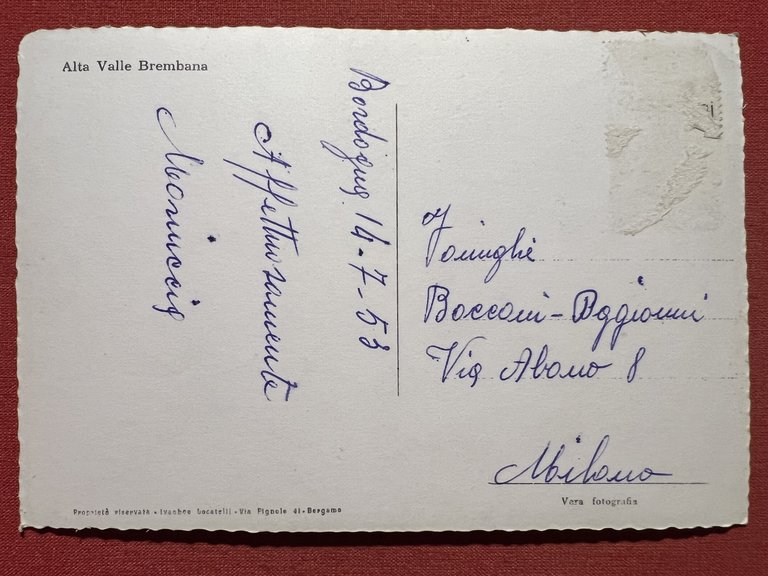 Alta Valle Brembana
Bordogna 14-7-53
Affettuosamente
Mariuccia
Bocconi-Oggionni
Via Abano 8
Milano
Vera fotografia
Proprietà riservata - Ivanhoe Locatelli - Via Pignolo 41 - Bergamo